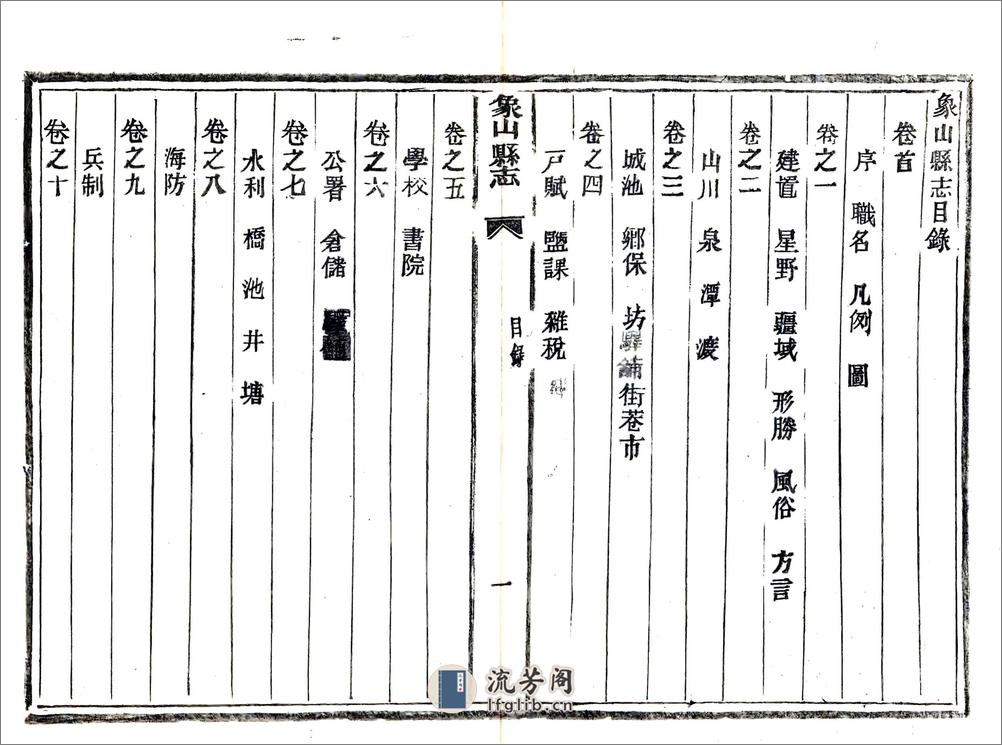 象山縣志目錄
卷首
序 職名 凡例 圖
卷之一
建置 星野 疆域 形勝 風俗 方言
卷之二
山川 泉 潭 渡
卷之三
城池 鄉保 坊 舖 街巷市
卷之四
戸賦 鹽課 雜稅
象山縣志 目錄 一
卷之五
學校 書院
卷之六
公署 倉儲
卷之七
水利 橋 池 井 塘
卷之八
海防
卷之九
兵制
卷之十
流芳阁
lfglib.cn